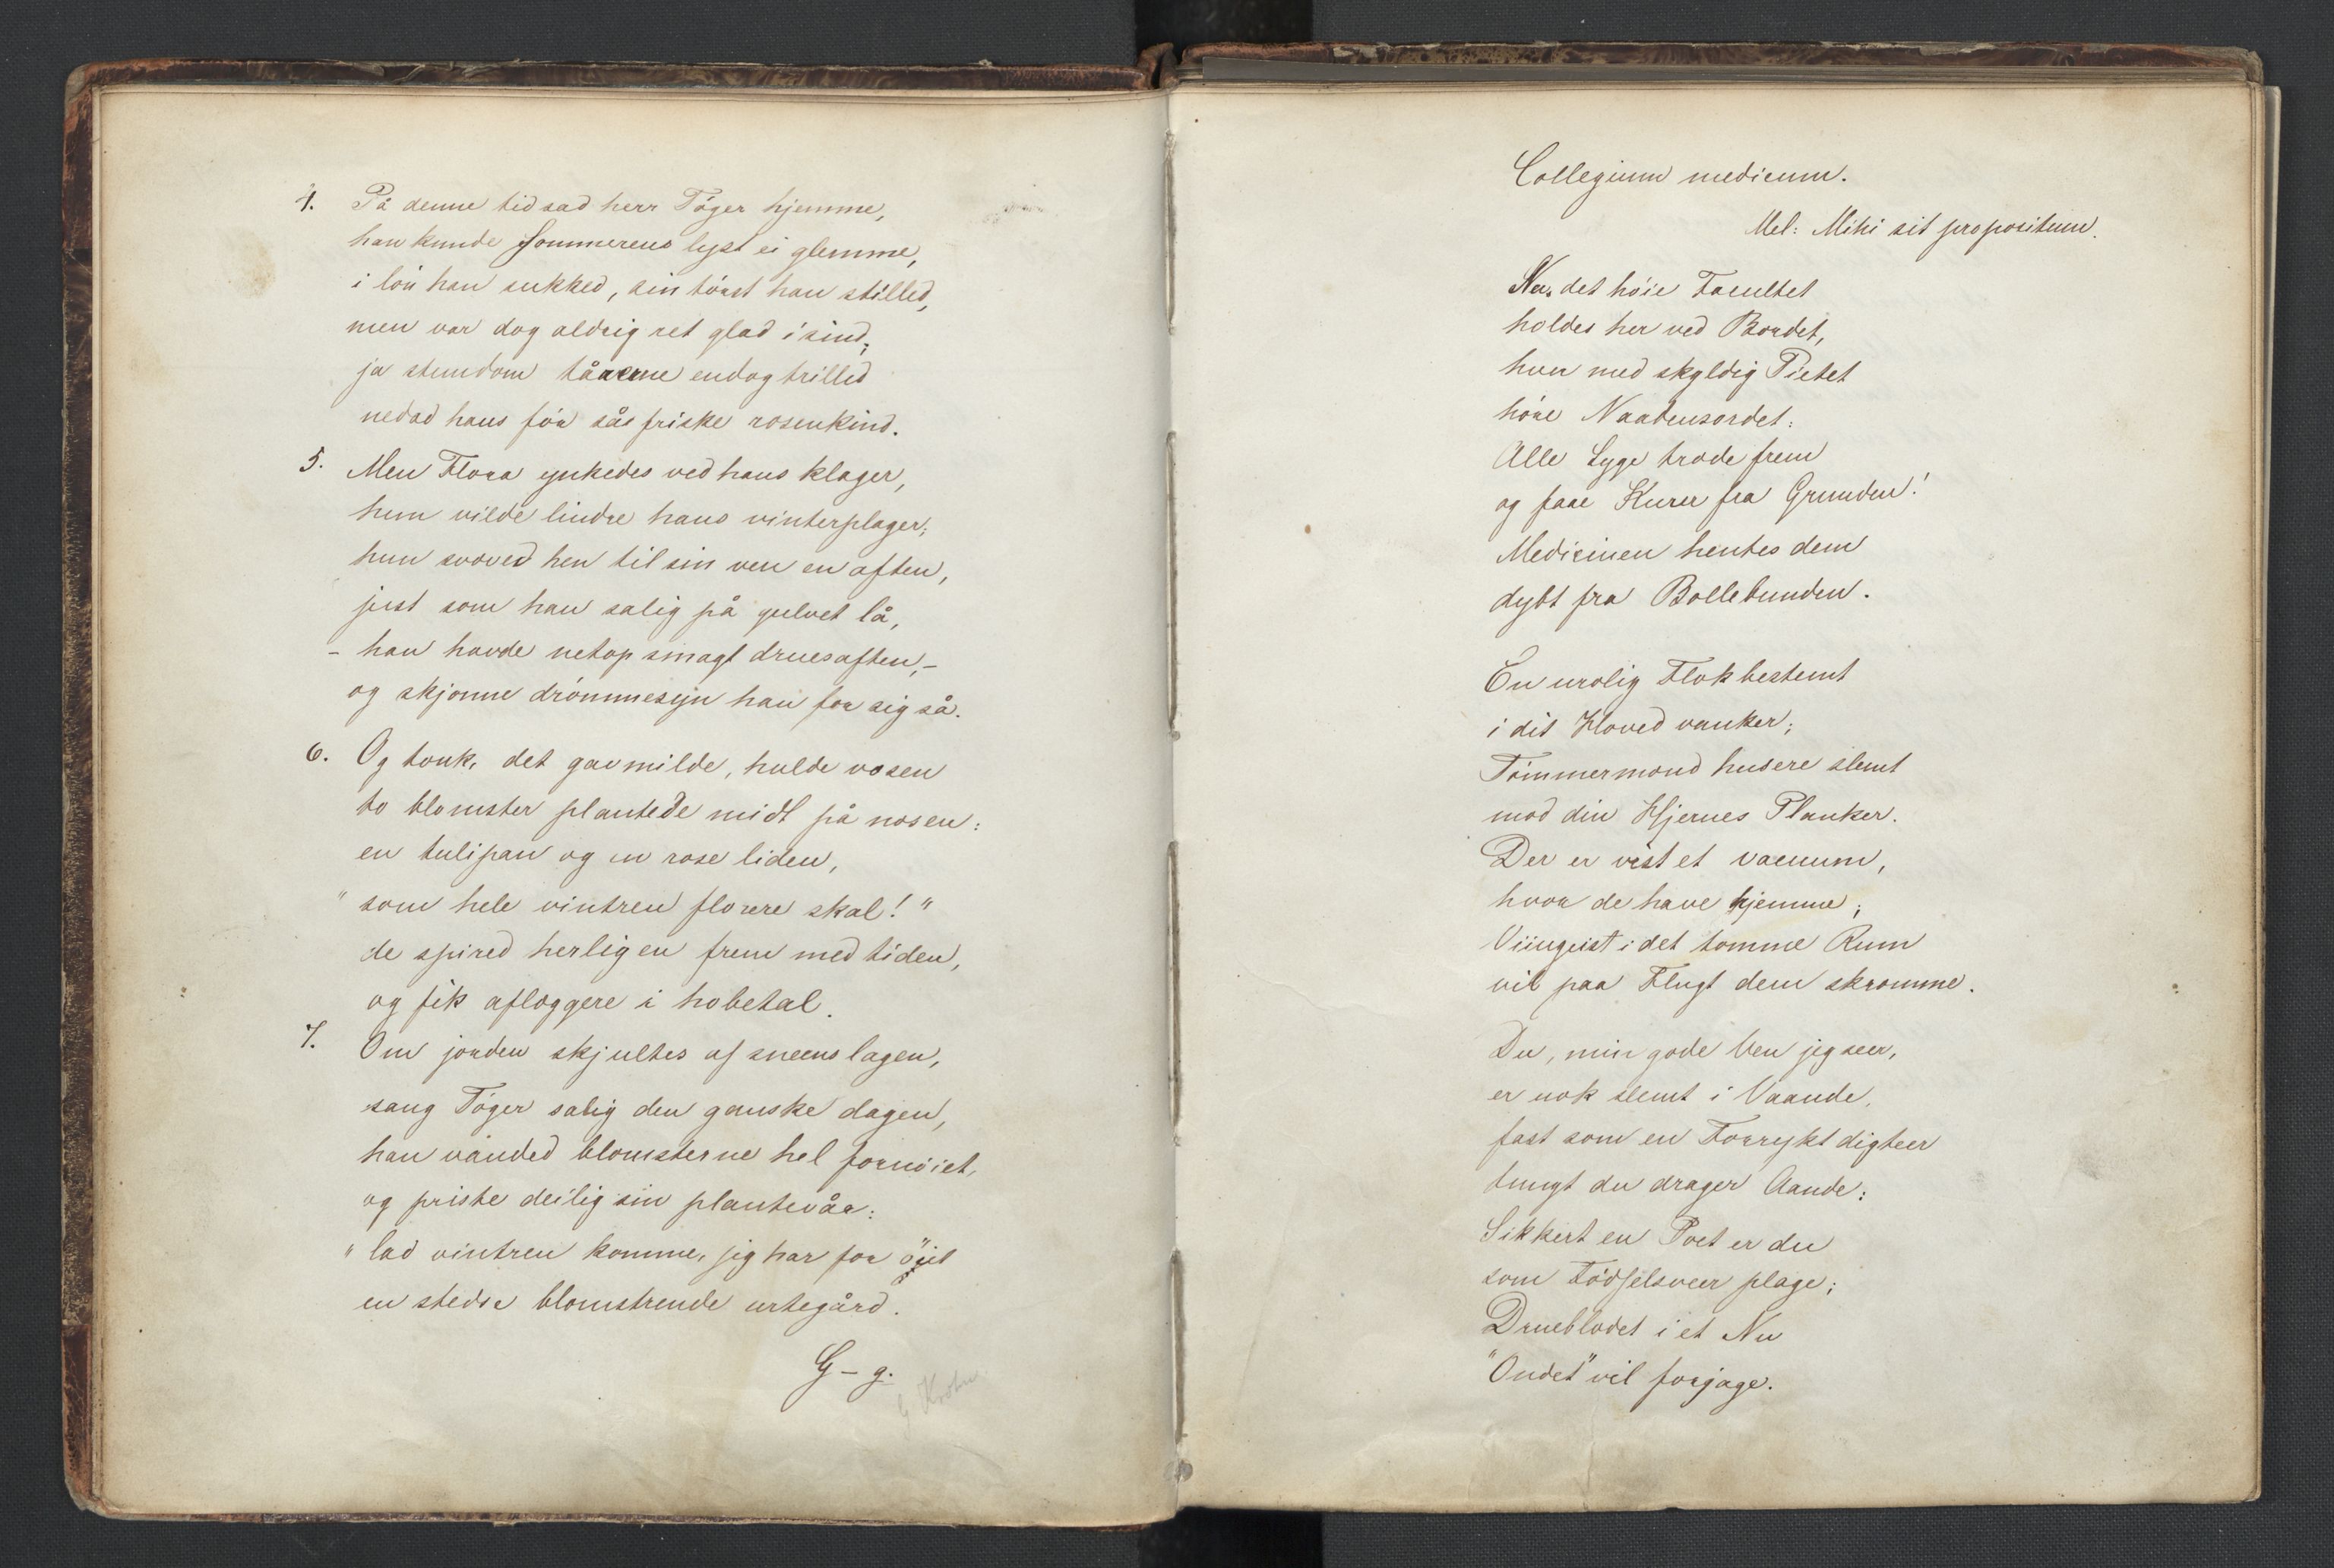 4. På denne tid sad herr Töger hjemme,
han kunde sommerens lyst ei glemme,
i lön han sukked, sin törst han stilled,
men var dog aldrig ret glad i sind;
ja stundom tåarerne endog trilled
nedad hans för så friske rosenkind.
5. Men Flora ynkedes ved hans klager,
hun vilde lindre hans vinterplager;
hun svæved hen til sin ven en aften,
just som han salig på gulvet lå,
- han havde netop smagt druesaften, -
og skjönne drömmesyn han for sig så.
6. Og tænk, det gavmilde, hulde væsen
to blomster plantede midt på næsen:
en tulipan og en rose liden,
"som hele vintren florere skal!"
de spired herligen frem med tiden,
og fik aflæggere i hobetal.
7. Om jorden skjultes af sneens lagen,
sang Töger salig den ganske dagen,
han vånded blomsterne hel fornöiet,
og priste deilig sin plantevår:
"lad vintren komme, jeg har for öiet
en stedse blomstrende urtegård.
G-g.
G Krohn
Collegium medicum.
Mel: Mihi sit propositum.
Na, det höie Facultet
holdes her ved Bordet,
hver med skyldig Pietet
höre Naadensordet:
Alle Syge træde frem
og faae Kurer fra Grunden!
Medicinen hentes dem
dybt fra Bollebunden.
En urolig Flok bestemt
i dit Hoved vanker;
Tömmermænd husere slemt
mod din Hjernes Planker.
Der er vist et vacuum,
hvor de have hjemme;
Viingeist i det tomme Rum
vil paa Flugt dem skræmme.
Du, min gode Ven jeg seer,
er nok slemt i Vaande,
fast som en Forrykt digteer
tungt du drager Aande:
Sikkert en Poet er du
som Födselsveer plage;
Drueblodet i et Nu
"Ondet" vil forjage.